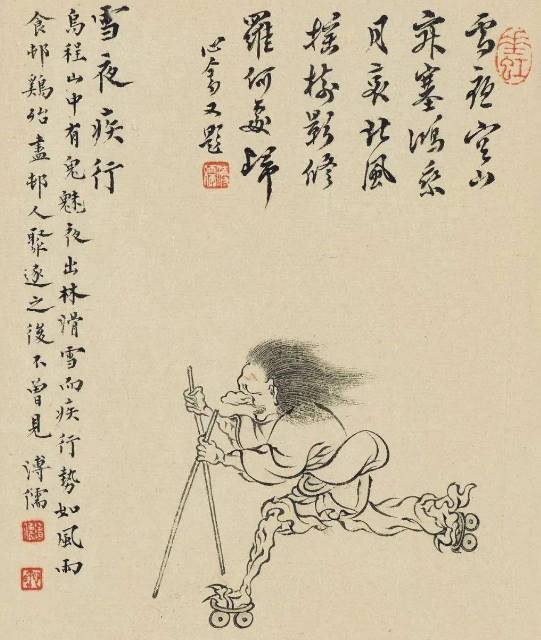 雪夜空山
寂塞鴻乘
月哀北風
搖樹影修
羅何處歸
心畬又題
雪夜疾行
烏程山中有鬼魅夜出林滑雪而疾行勢如風雨
食邨鷄殆盡邨人聚逐之後不曾見 溥儒